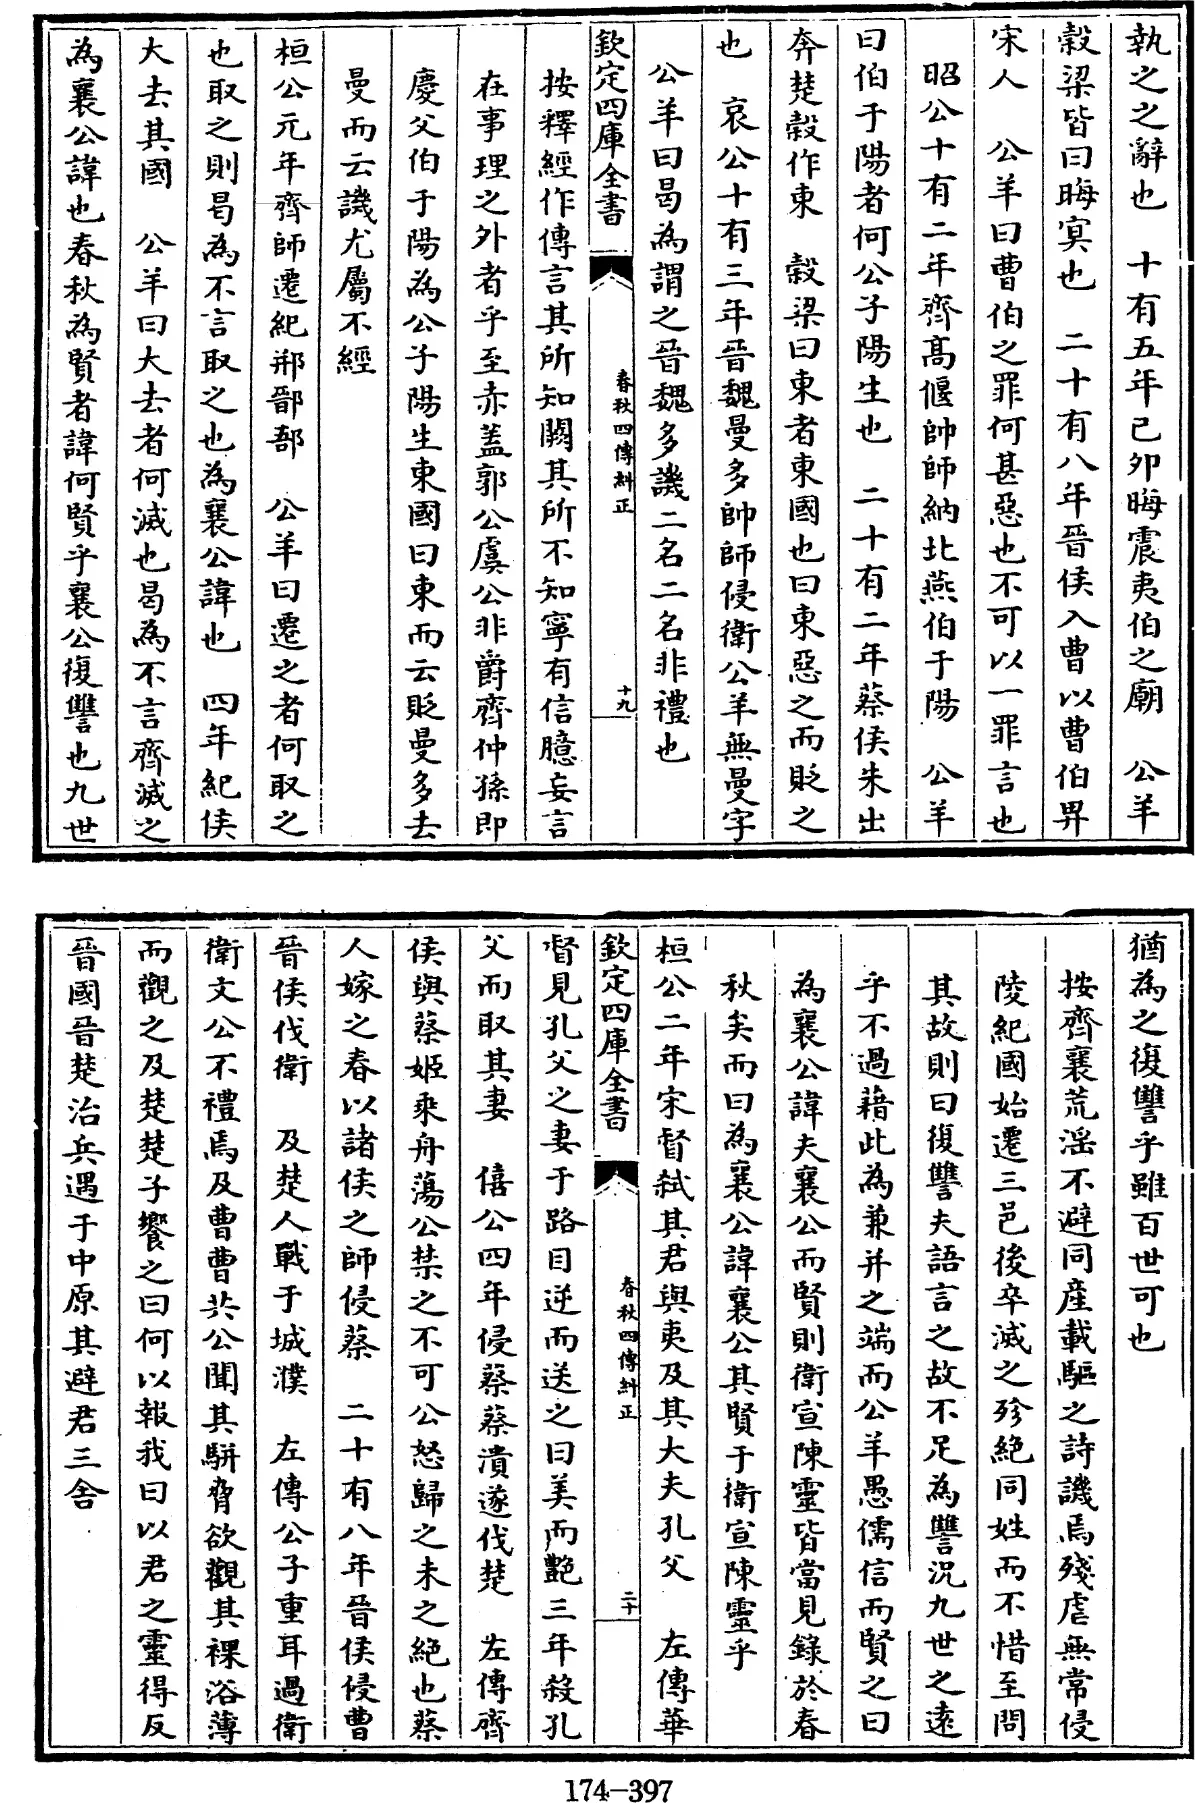 執之之辭也　十有五年己卯晦震夷伯之廟　公羊
穀梁皆曰晦冥也　二十有八年晉侯入曹以曹伯畀
宋人　公羊曰曹伯之罪何甚惡也不可以一罪言也
昭公十有二年齊髙偃帥師納北燕伯于陽　公羊
曰伯于陽者何公子陽生也　二十有二年蔡侯朱出
奔楚穀作東　穀梁曰東者東國也曰東惡之而貶之
也　哀公十有三年晉魏曼多帥師侵衛公羊無曼字
公羊曰曷為謂之晉魏多譏二名二名非禮也
欽定四庫全書
春秋四傳糾正
十九
按釋經作傳言其所知闕其所不知寧有信臆妄言
在事理之外者乎至赤盖郭公虞公非爵齊仲孫即
慶父伯于陽為公子陽生東國曰東而云貶曼多去
曼而云譏尤屬不經
桓公元年齊師遷紀郱鄑郚　公羊曰遷之者何取之
也取之則曷為不言取之也為襄公諱也　四年紀侯
大去其國　公羊曰大去者何滅也曷為不言齊滅之
為襄公諱也春秋為賢者諱何賢乎襄公復讐也九世
猶為之復讐乎雖百世可也
按齊襄荒滛不避同産載驅之詩譏焉殘虐無常侵
陵紀國始遷三邑後卒滅之殄絶同姓而不惜至問
其故則曰復讐夫語言之故不足為讐況九世之遠
乎不過藉此為兼并之端而公羊愚儒信而賢之曰
為襄公諱夫襄公而賢則衛宣陳靈皆當見錄於春
秋矣而曰為襄公諱襄公其賢于衛宣陳靈乎
桓公二年宋督弑其君與夷及其大夫孔父　左傳華
欽定四庫全書
春秋四傳糾正
二十
督見孔父之妻于路目逆而送之曰美而艷三年殺孔
父而取其妻　僖公四年侵蔡蔡潰遂伐楚　左傳齊
侯與蔡姬乘舟蕩公禁之不可公怒歸之未之絶也蔡
人嫁之春以諸侯之師侵蔡　二十有八年晉侯侵曹
晉侯伐衛　及楚人戰于城濮　左傳公子重耳過衛
衛文公不禮焉及曹曹共公聞其駢脅欲觀其裸浴薄
而觀之及楚楚子饗之曰何以報我曰以君之靈得反
晉國晉楚治兵遇于中原其避君三舍
174-397